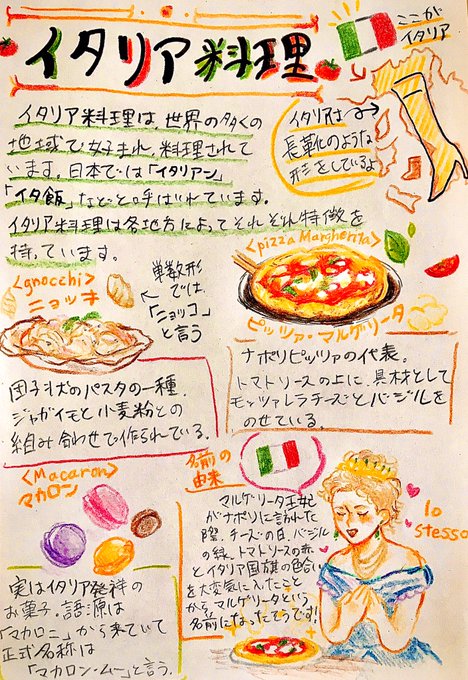 イタリア料理
ここが
イタリア
イタリア料理は、世界の多くの
地域で好まれ、料理されて
います。日本では「イタリアン」
「イタ飯」などと呼ばれています。
イタリア料理は各地方によってそれぞれ特徴を
持っています。
イタリアは
長靴のような
形をしているよ
<gnocchi>
ニョッキ
単数形
では
「ニョッコ」
と言う
団子状のパスタの一種。
ジャガイモと小麦粉との
組み合わせで作られている。
<pizza Margherita>
ピッツァ・マルゲリータ
ナポリピッツァの代表。
トマトソースの上に、具材として
モッツァレラチーズとバジルを
のせている。
<Macaron>
マカロン
実はイタリア発祥の
お菓子。語源は
「マカロニ」から来ていて
正式名称は
「マカロン・ムー」と言う。
名前の
由来
マルゲリータ王妃
がナポリに訪れた
際、チーズの白、バジル
の緑、トマトソースの赤
とイタリア国旗の色合い
を大変気に入ったこと
からマルゲリータという
名前になったそうです!
lo
stesso